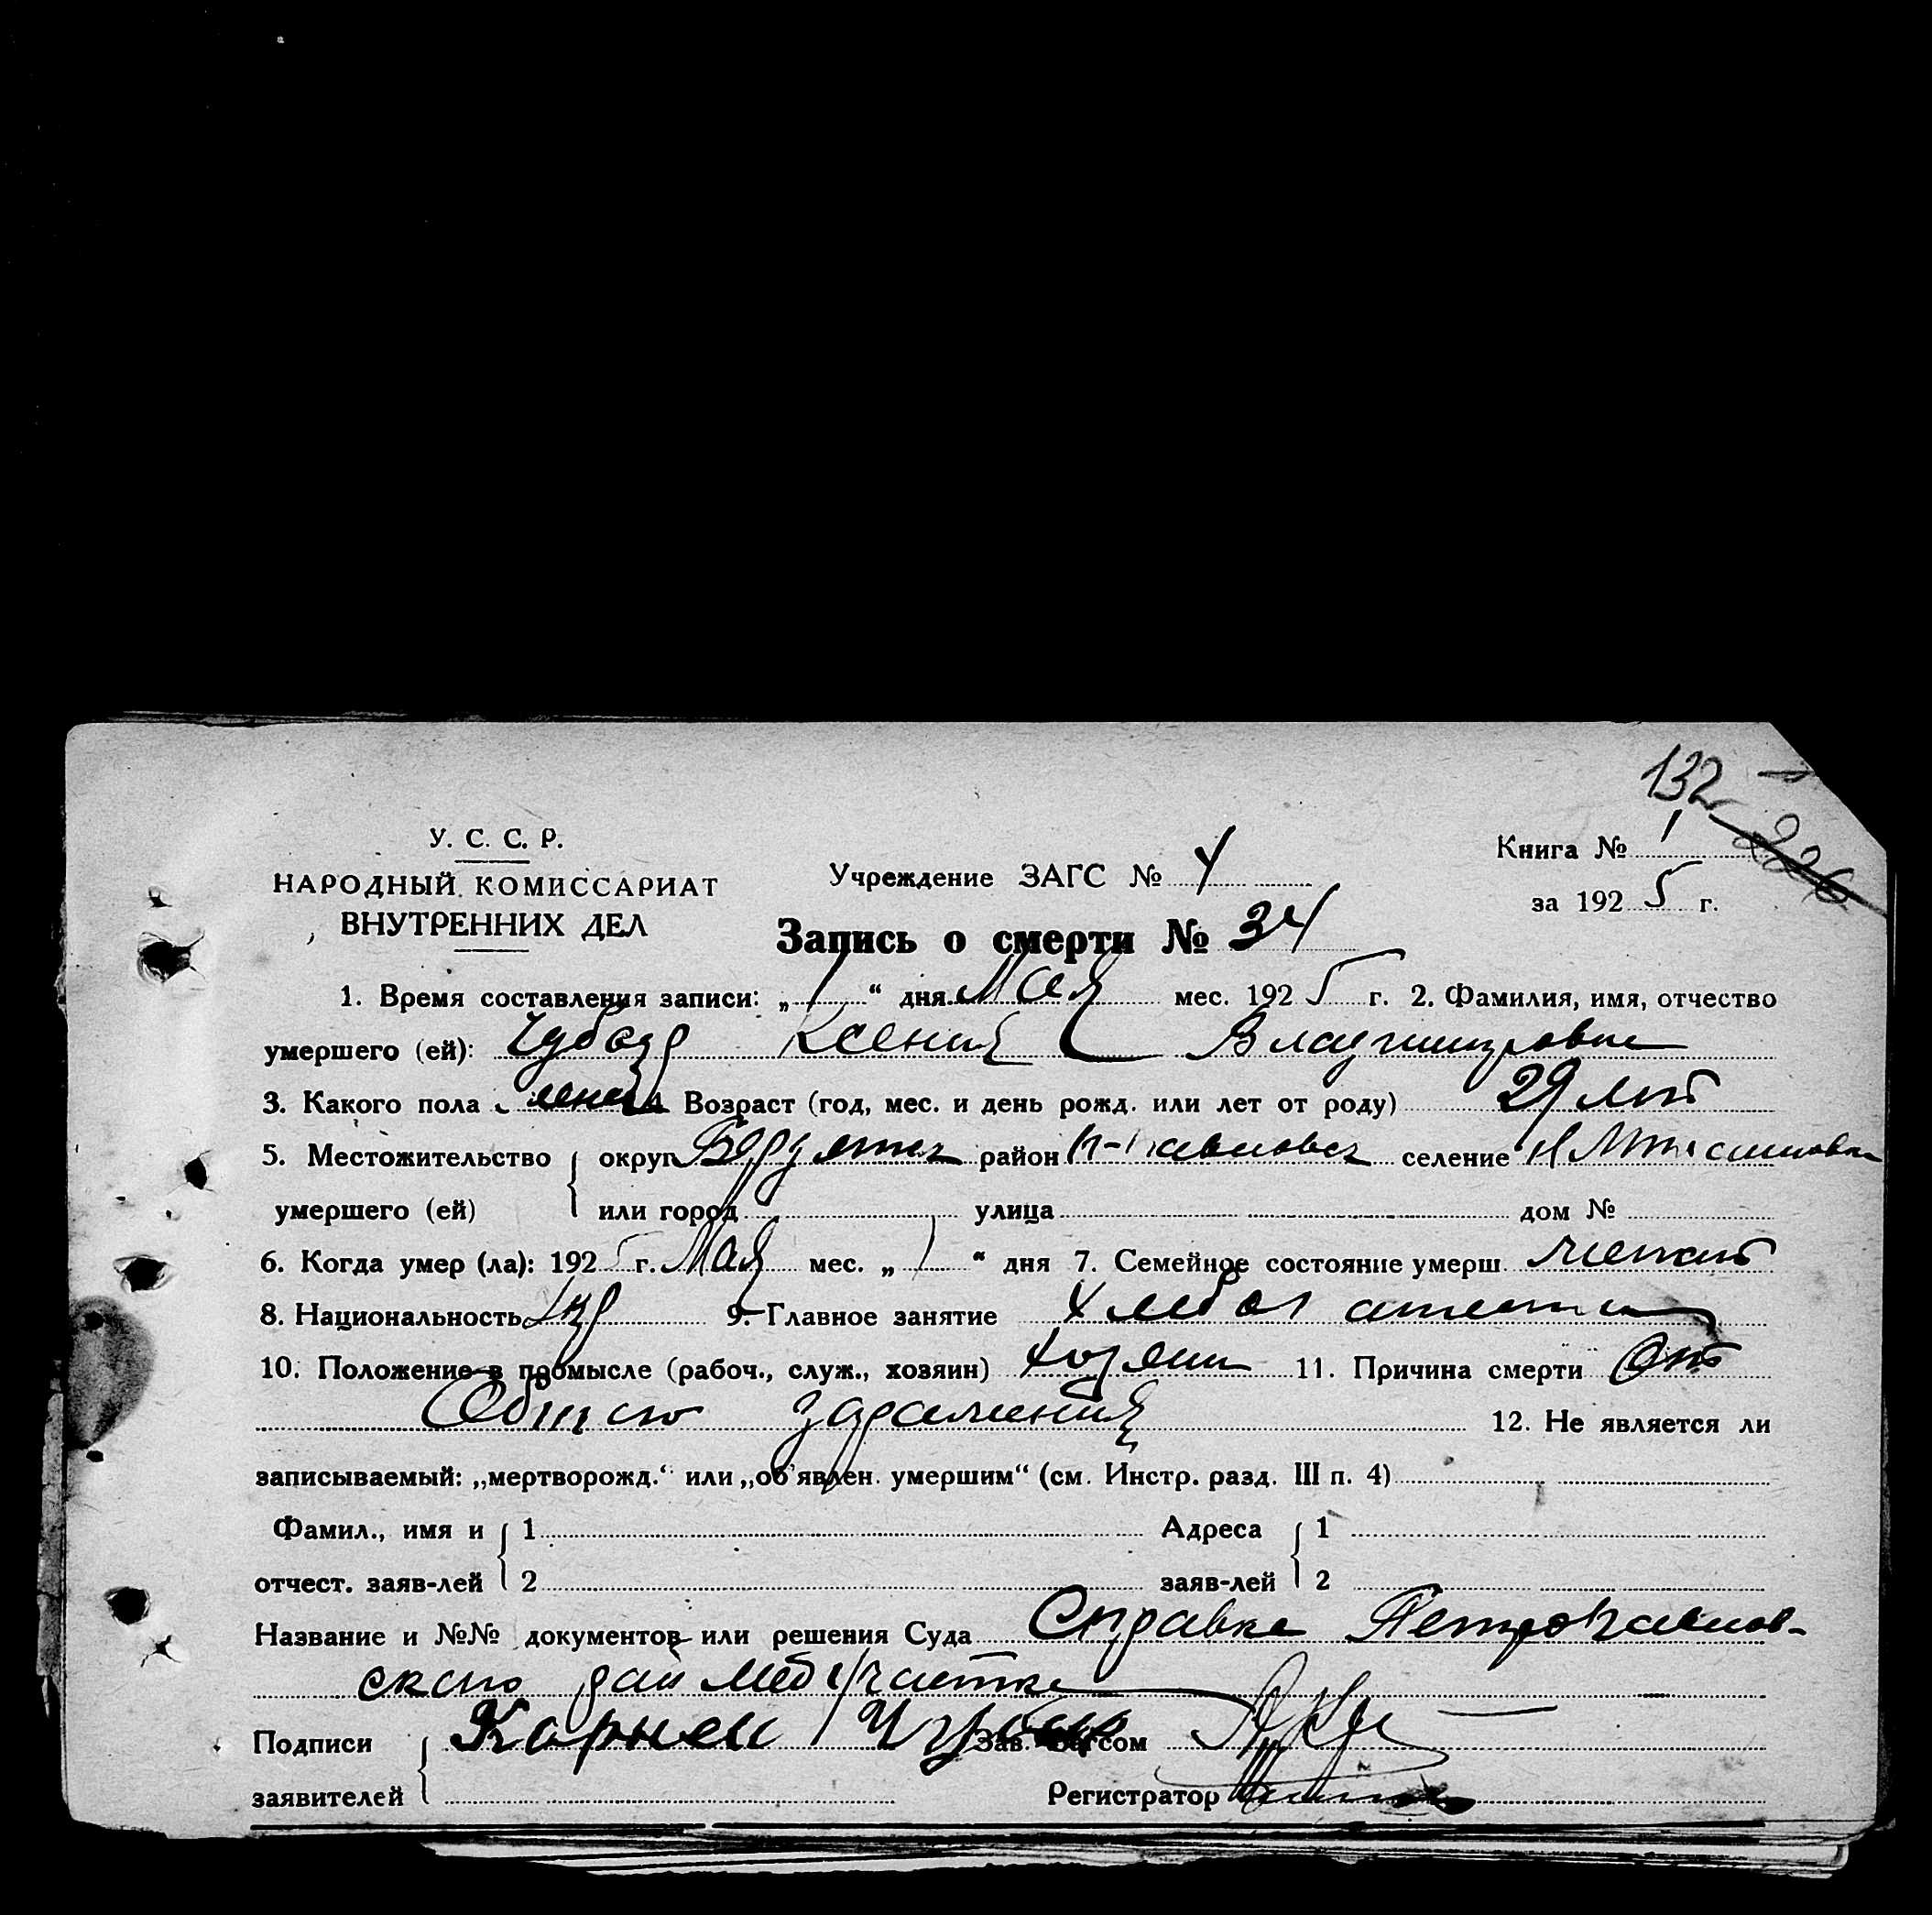 132
226
У. С. С. Р.
НАРОДНЫЙ КОМИССАРИАТ
ВНУТРЕННИХ ДЕЛ
Учреждение ЗАГС № 4
Книга № 1
за 1925 г.
Запись о смерти № 34
1. Время составления записи: „1“ дня Мая мес. 1925 г. 2. Фамилия, имя, отчество
умершего (ей): Ксения Владимировна
3. Какого пола Возраст (год, мес. и день рожд. или лет от роду) 29 лет
5. Местожительство округ район селение
умершего (ей) или город улица дом №
6. Когда умер (ла): 1925 г. Мая мес. „1“ дня 7. Семейное состояние умерш.
8. Национальность Укр 9. Главное занятие
10. Положение в промысле (рабоч., служ., хозяин) хозяин 11. Причина смерти От
Общего заражения 12. Не является ли
записываемый: „мертворожд.“ или „об’явлен. умершим“ (см. Инстр. разд. III п. 4)
Фамил., имя и 1 Адреса 1
отчест. заяв-лей 2 заяв-лей 2
Название и №№ документов или решения Суда Справка Петропавлов-
ского рай
Подписи Корней Зав. Загсом
заявителей Регистратор